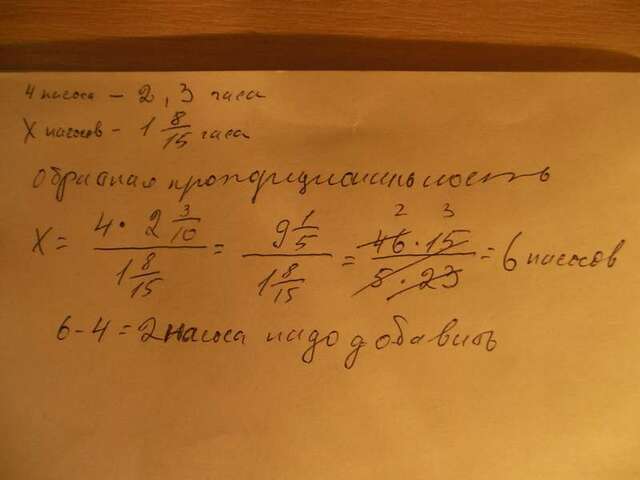 4 насоса – 2,3 часа
X насосов – 1 8/15 часа
Обратная пропорциональность
X = (4 · 2 3/10) / (1 8/15) = (9 1/5) / (1 8/15) = (46 · 15) / (5 · 23) 2 3 = 6 насосов
6-4=2 насоса надо добавить